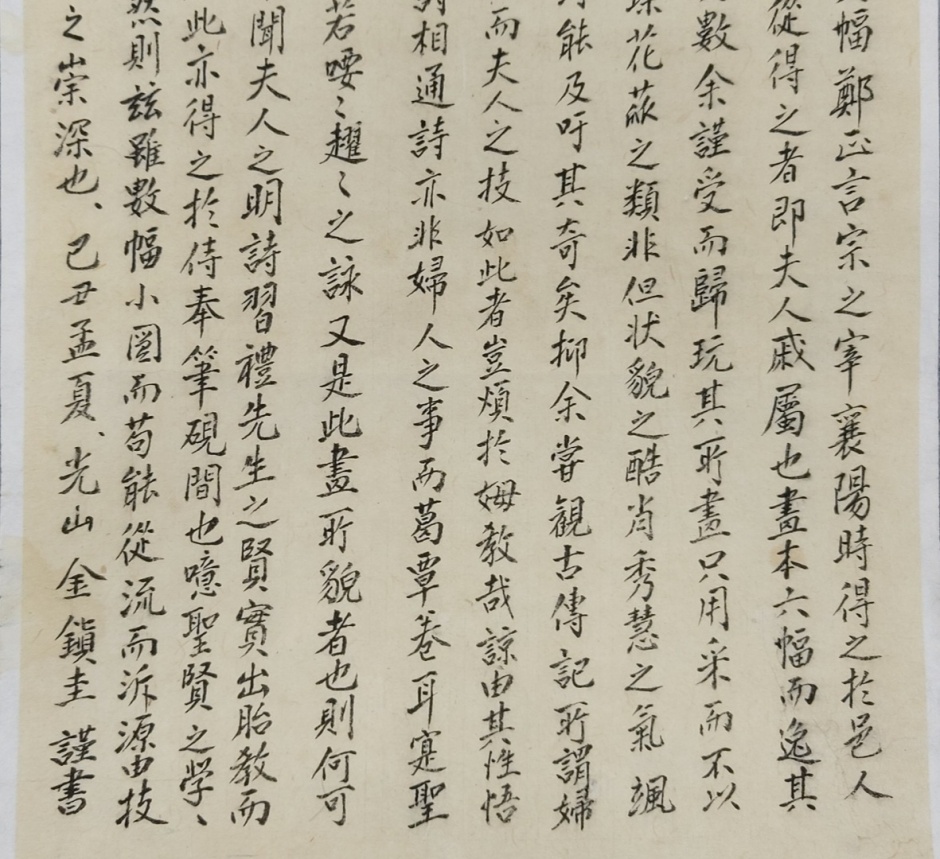 幅鄭正言宗之宰襄陽時得之於邑人
從得之者即夫人戚屬也畫本六幅而逸其
數余謹受而歸玩其所畫只用采而不以
花菰之類非但狀貌之酷肖秀慧之氣颯
能及吁其奇矣抑余嘗觀古傳記所謂婦
而夫人之技如此者豈煩於姆教哉諒由其性悟
相通詩亦非婦人之事而葛覃卷耳寔聖
若喓〻趯〻之詠又是此畫所貌者也則何可
聞夫人之明詩習禮先生之賢實出胎教而
此亦得之於侍奉筆硯間也噫聖賢之学〻
然則玆雖數幅小圖而苟能從流而泝源由技
之崇深也、己丑孟夏、光山金鎭圭謹書